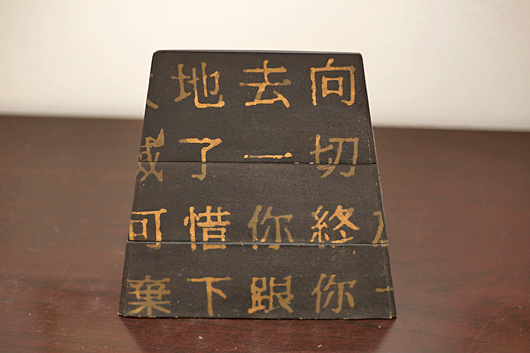 地去向
了一切
可惜你終
棄下跟你